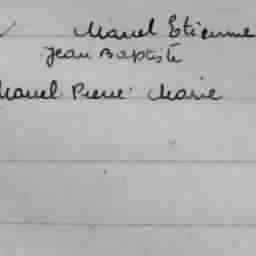 Marcel Etienne
Jean Baptiste
Marcel Pierre Marie